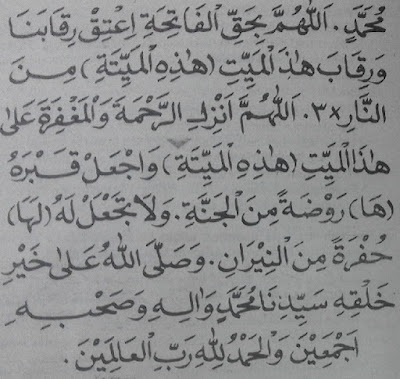 مُحَمَّدٍ. اَللّٰهُمَّ بِحَقِّ الْفَاتِحَةِ اِعْتِقْ رِقَابَنَا
وَرِقَابَ هٰذَا الْمَيِّتِ (هٰذِهِ الْمَيِّتَةِ) مِنَ
النَّارِ ×٣. اَللّٰهُمَّ اَنْزِلِ الرَّحْمَةَ وَالْمَغْفِرَةَ عَلٰى
هٰذَا الْمَيِّتِ (هٰذِهِ الْمَيِّتَةِ) وَاجْعَلْ قَبْرَهُ
(هَا) رَوْضَةً مِنَ الْجَنَّةِ. وَلَا تَجْعَلْ لَهُ (لَهَا)
حُفْرَةً مِنَ النِّيْرَانِ. وَصَلَّى اللّٰهُ عَلٰى خَيْرِ
خَلْقِهِ سَيِّدِنَا مُحَمَّدٍ وَاٰلِهِ وَصَحْبِهِ
اَجْمَعِيْنَ وَالْحَمْدُ لِلّٰهِ رَبِّ الْعَالَمِيْنَ.